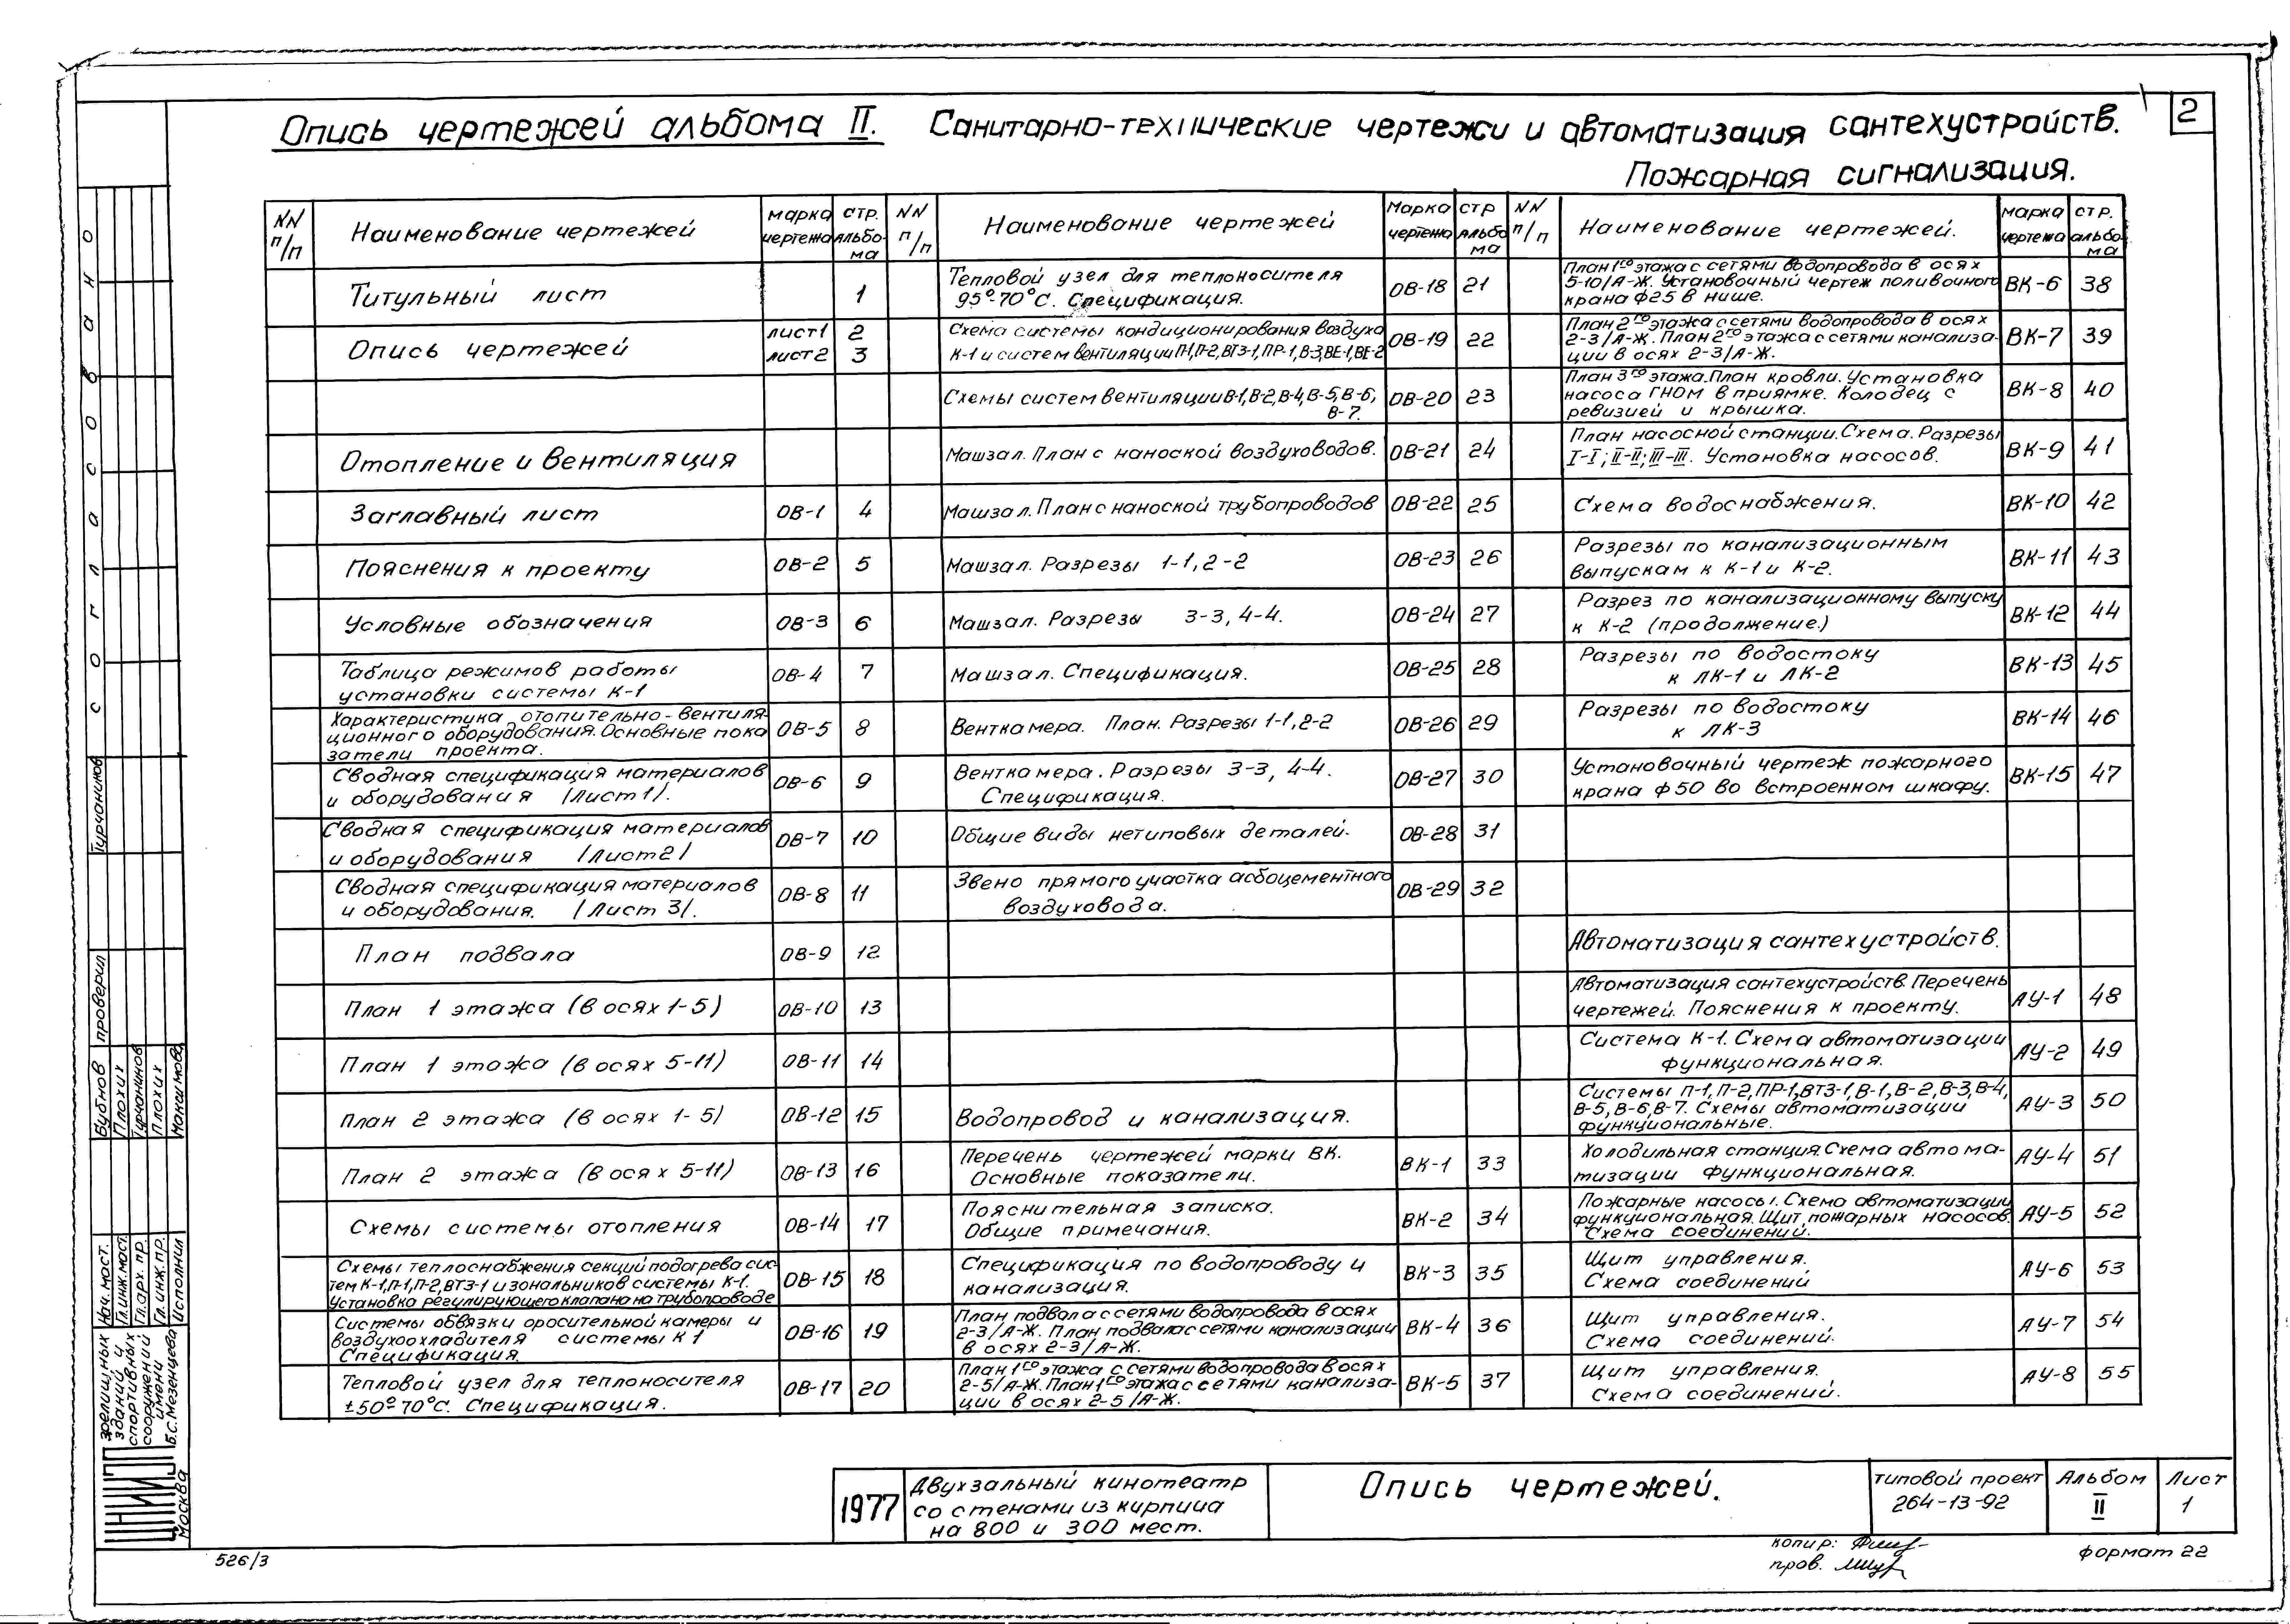 2
Опись чертежей альбома II. Санитарно-технические чертежи и автоматизация сантехустройств.
Пожарная сигнализация.
NN п/п
Наименование чертежей
марка чертежа
стр. альбо-ма
Титульный лист 1
Опись чертежей лист1 2
лист2 3
Отопление и вентиляция
Заглавный лист ОВ-1 4
Пояснения к проекту ОВ-2 5
Условные обозначения ОВ-3 6
Таблица режимов работы
установки системы К-1 ОВ-4 7
Характеристика отопительно-вентиля-
ционного оборудования. Основные пока
затели проекта. ОВ-5 8
Сводная спецификация материалов
и оборудования /Лист1/. ОВ-6 9
Сводная спецификация материалов
и оборудования /Лист2/ ОВ-7 10
Сводная спецификация материалов
и оборудования. /Лист 3/. ОВ-8 11
План подвала ОВ-9 12
План 1 этажа (в осях 1-5) ОВ-10 13
План 1 этажа (в осях 5-11) ОВ-11 14
План 2 этажа (в осях 1-5) ОВ-12 15
План 2 этажа (в осях 5-11) ОВ-13 16
Схемы системы отопления ОВ-14 17
Схемы теплоснабжения секций подогрева сис-
тем К-1, П-1, П-2, ВТЗ-1 и зональников системы К-1.
Установка регулирующего клапана на трубопроводе ОВ-15 18
Системы обвязки оросительной камеры и
воздухоохладителя системы К 1
Спецификация. ОВ-16 19
Тепловой узел для теплоносителя
±50°-70°С. Спецификация. ОВ-17 20
NN п/п
Наименование чертежей
Марка чертежа
стр альбо ма
Тепловой узел для теплоносителя
95°-70°С. Спецификация. ОВ-18 21
Схема системы кондиционирования воздуха
К-1 и систем вентиляции П-1, П-2, ВТЗ-1, ПР-1, В-3, ВЕ-1, ВЕ-2 ОВ-19 22
Схемы систем вентиляции В-1, В-2, В-4, В-5, В-6,
В-7. ОВ-20 23
Машзал. План с наноской воздуховодов. ОВ-21 24
Машзал. План с наноской трубопроводов ОВ-22 25
Машзал. Разрезы 1-1, 2-2 ОВ-23 26
Машзал. Разрезы 3-3, 4-4. ОВ-24 27
Машзал. Спецификация. ОВ-25 28
Венткамера. План. Разрезы 1-1, 2-2 ОВ-26 29
Венткамера. Разрезы 3-3, 4-4.
Спецификация. ОВ-27 30
Общие виды нетиповых деталей. ОВ-28 31
Звено прямого участка асбоцементного
воздуховода. ОВ-29 32
Водопровод и канализация.
Перечень чертежей марки ВК.
Основные показатели. ВК-1 33
Пояснительная записка.
Общие примечания. ВК-2 34
Спецификация по водопроводу и
канализация. ВК-3 35
План подвала с сетями водопровода в осях
2-3/А-Ж. План подвала с сетями канализации
в осях 2-3/А-Ж. ВК-4 36
План 1го этажа с сетями водопровода в осях
2-5/А-Ж. План 1го этажа с сетями канализа-
ции в осях 2-5/А-Ж. ВК-5 37
NN п/п
Наименование чертежей.
марка чертежа
стр. альбо ма
План 1го этажа с сетями водопровода в осях
5-10/А-Ж. Установочный чертеж поливочного
крана ф25 в нише. ВК-6 38
План 2го этажа с сетями водопровода в осях
2-3/А-Ж. План 2го этажа с сетями канализа-
ции в осях 2-3/А-Ж. ВК-7 39
План 3го этажа. План кровли. Установка
насоса ГНОМ в приямке. Колодец с
ревизией и крышка. ВК-8 40
План насосной станции. Схема. Разрезы
I-I; II-II; III-III. Установка насосов. ВК-9 41
Схема водоснабжения. ВК-10 42
Разрезы по канализационным
выпускам к К-1 и К-2. ВК-11 43
Разрез по канализационному выпуску
к К-2 (продолжение.) ВК-12 44
Разрезы по водостоку
к ЛК-1 и ЛК-2 ВК-13 45
Разрезы по водостоку
к ЛК-3 ВК-14 46
Установочный чертеж пожарного
крана ф50 во встроенном шкафу. ВК-15 47
Автоматизация сантехустройств.
Автоматизация сантехустройств. Перечень
чертежей. Пояснения к проекту. АУ-1 48
Система К-1. Схема автоматизации
функциональная. АУ-2 49
Системы П-1, П-2, ПР-1, ВТЗ-1, В-1, В-2, В-3, В-4,
В-5, В-6, В-7. Схемы автоматизации
функциональные. АУ-3 50
Холодильная станция. Схема автома-
тизации функциональная. АУ-4 51
Пожарные насосы. Схема автоматизации
функциональная. Щит пожарных насосов.
Схема соединений. АУ-5 52
Щит управления.
Схема соединений АУ-6 53
Щит управления.
Схема соединений. АУ-7 54
Щит управления.
Схема соединений. АУ-8 55
Согласовано
Турчанинов
проверил
Бубнов
Плохих
Турчанинов
Плохих
Максимова
Нач. маст.
Гл.инж.маст.
Гл.арх. пр.
Гл.инж.пр.
Исполнил
ЦНИИЭП
зрелищных
зданий и
спортивных
сооружений
имени
Б.С.Мезенцева
Москва
1977
Двухзальный кинотеатр
со стенами из кирпича
на 800 и 300 мест.
Опись чертежей.
типовой проект
264-13-92
Альбом
II
Лист
1
526/3
копир:
пров.
формат 22